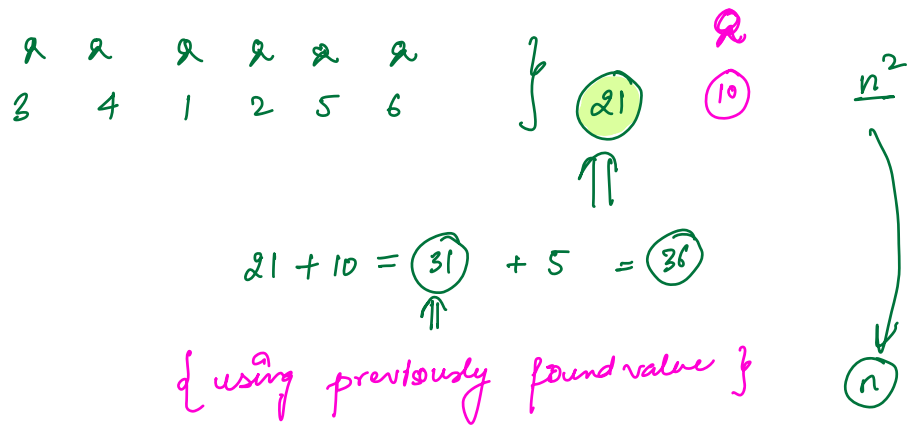 3 4 1 2 5 6 } 21 10 n²
21 + 10 = 31 + 5 = 36
{ using previously found value } n